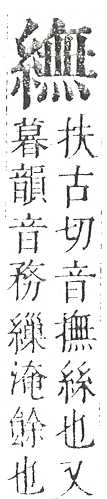 𦅺
扶古切音撫絲也又
暮韻音務繅淹餘也